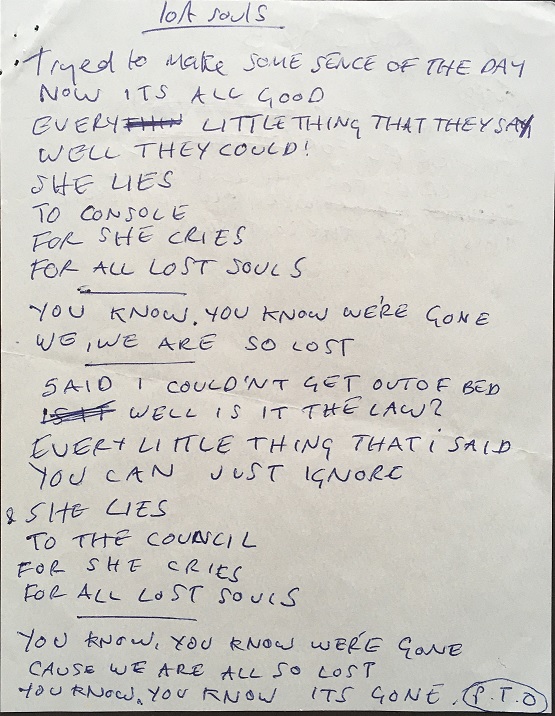 lost souls
Tryed to make some sence of the day
NOW ITS ALL GOOD
EVERY LITTLE THING THAT THEY SAY
WELL THEY COULD!
SHE LIES
TO CONSOLE
FOR SHE CRIES
FOR ALL LOST SOULS
YOU KNOW, YOU KNOW WE'RE GONE
WE, WE ARE SO LOST
SAID I COULD'NT GET OUT OF BED
WELL IS IT THE LAW?
EVERY LITTLE THING THAT i SAID
YOU CAN JUST IGNORE
& SHE LIES
TO THE COUNCIL
FOR SHE CRIES
FOR ALL LOST SOULS
YOU KNOW, YOU KNOW WE'RE GONE
CAUSE WE ARE ALL SO LOST
YOU KNOW, YOU KNOW ITS GONE. P.T.O